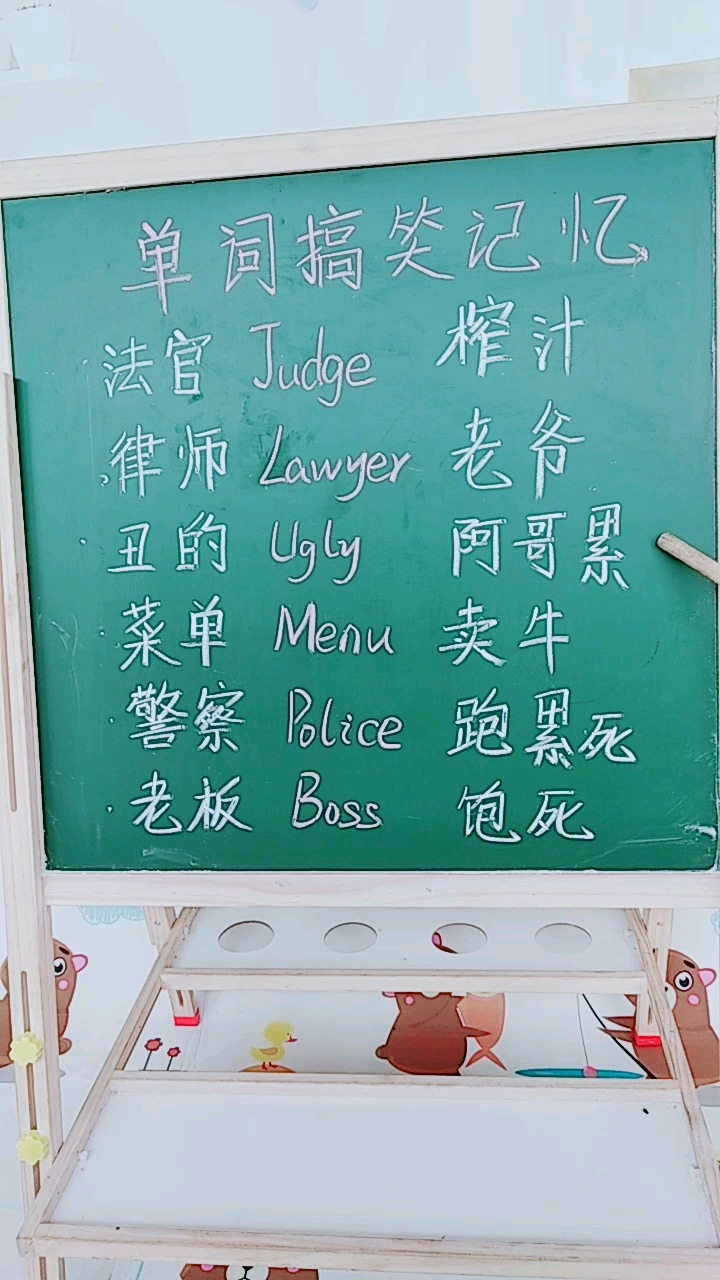 单词搞笑记忆
法官 Judge 榨汁
律师 Lawyer 老爷
丑的 Ugly 阿哥累
菜单 Menu 卖牛
警察 Police 跑累死
老板 Boss 饱死